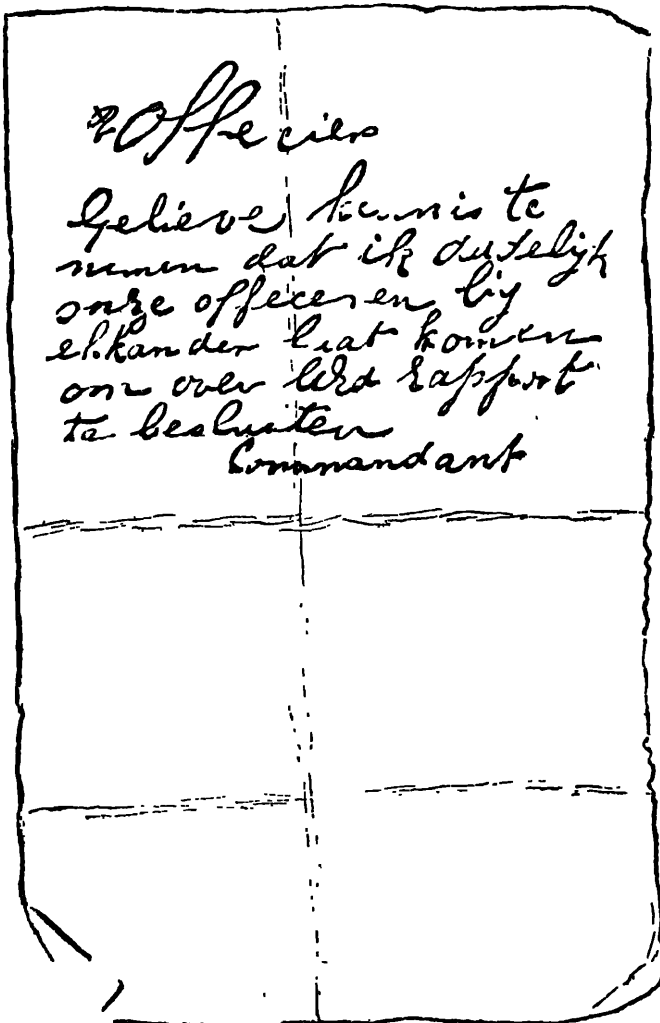 Offecier
Gelieve kennis te
nemen dat ik dutelijk
onze offeceren bij
elkander laat komen
om over Uwd rapport
te besluiten
Commandant